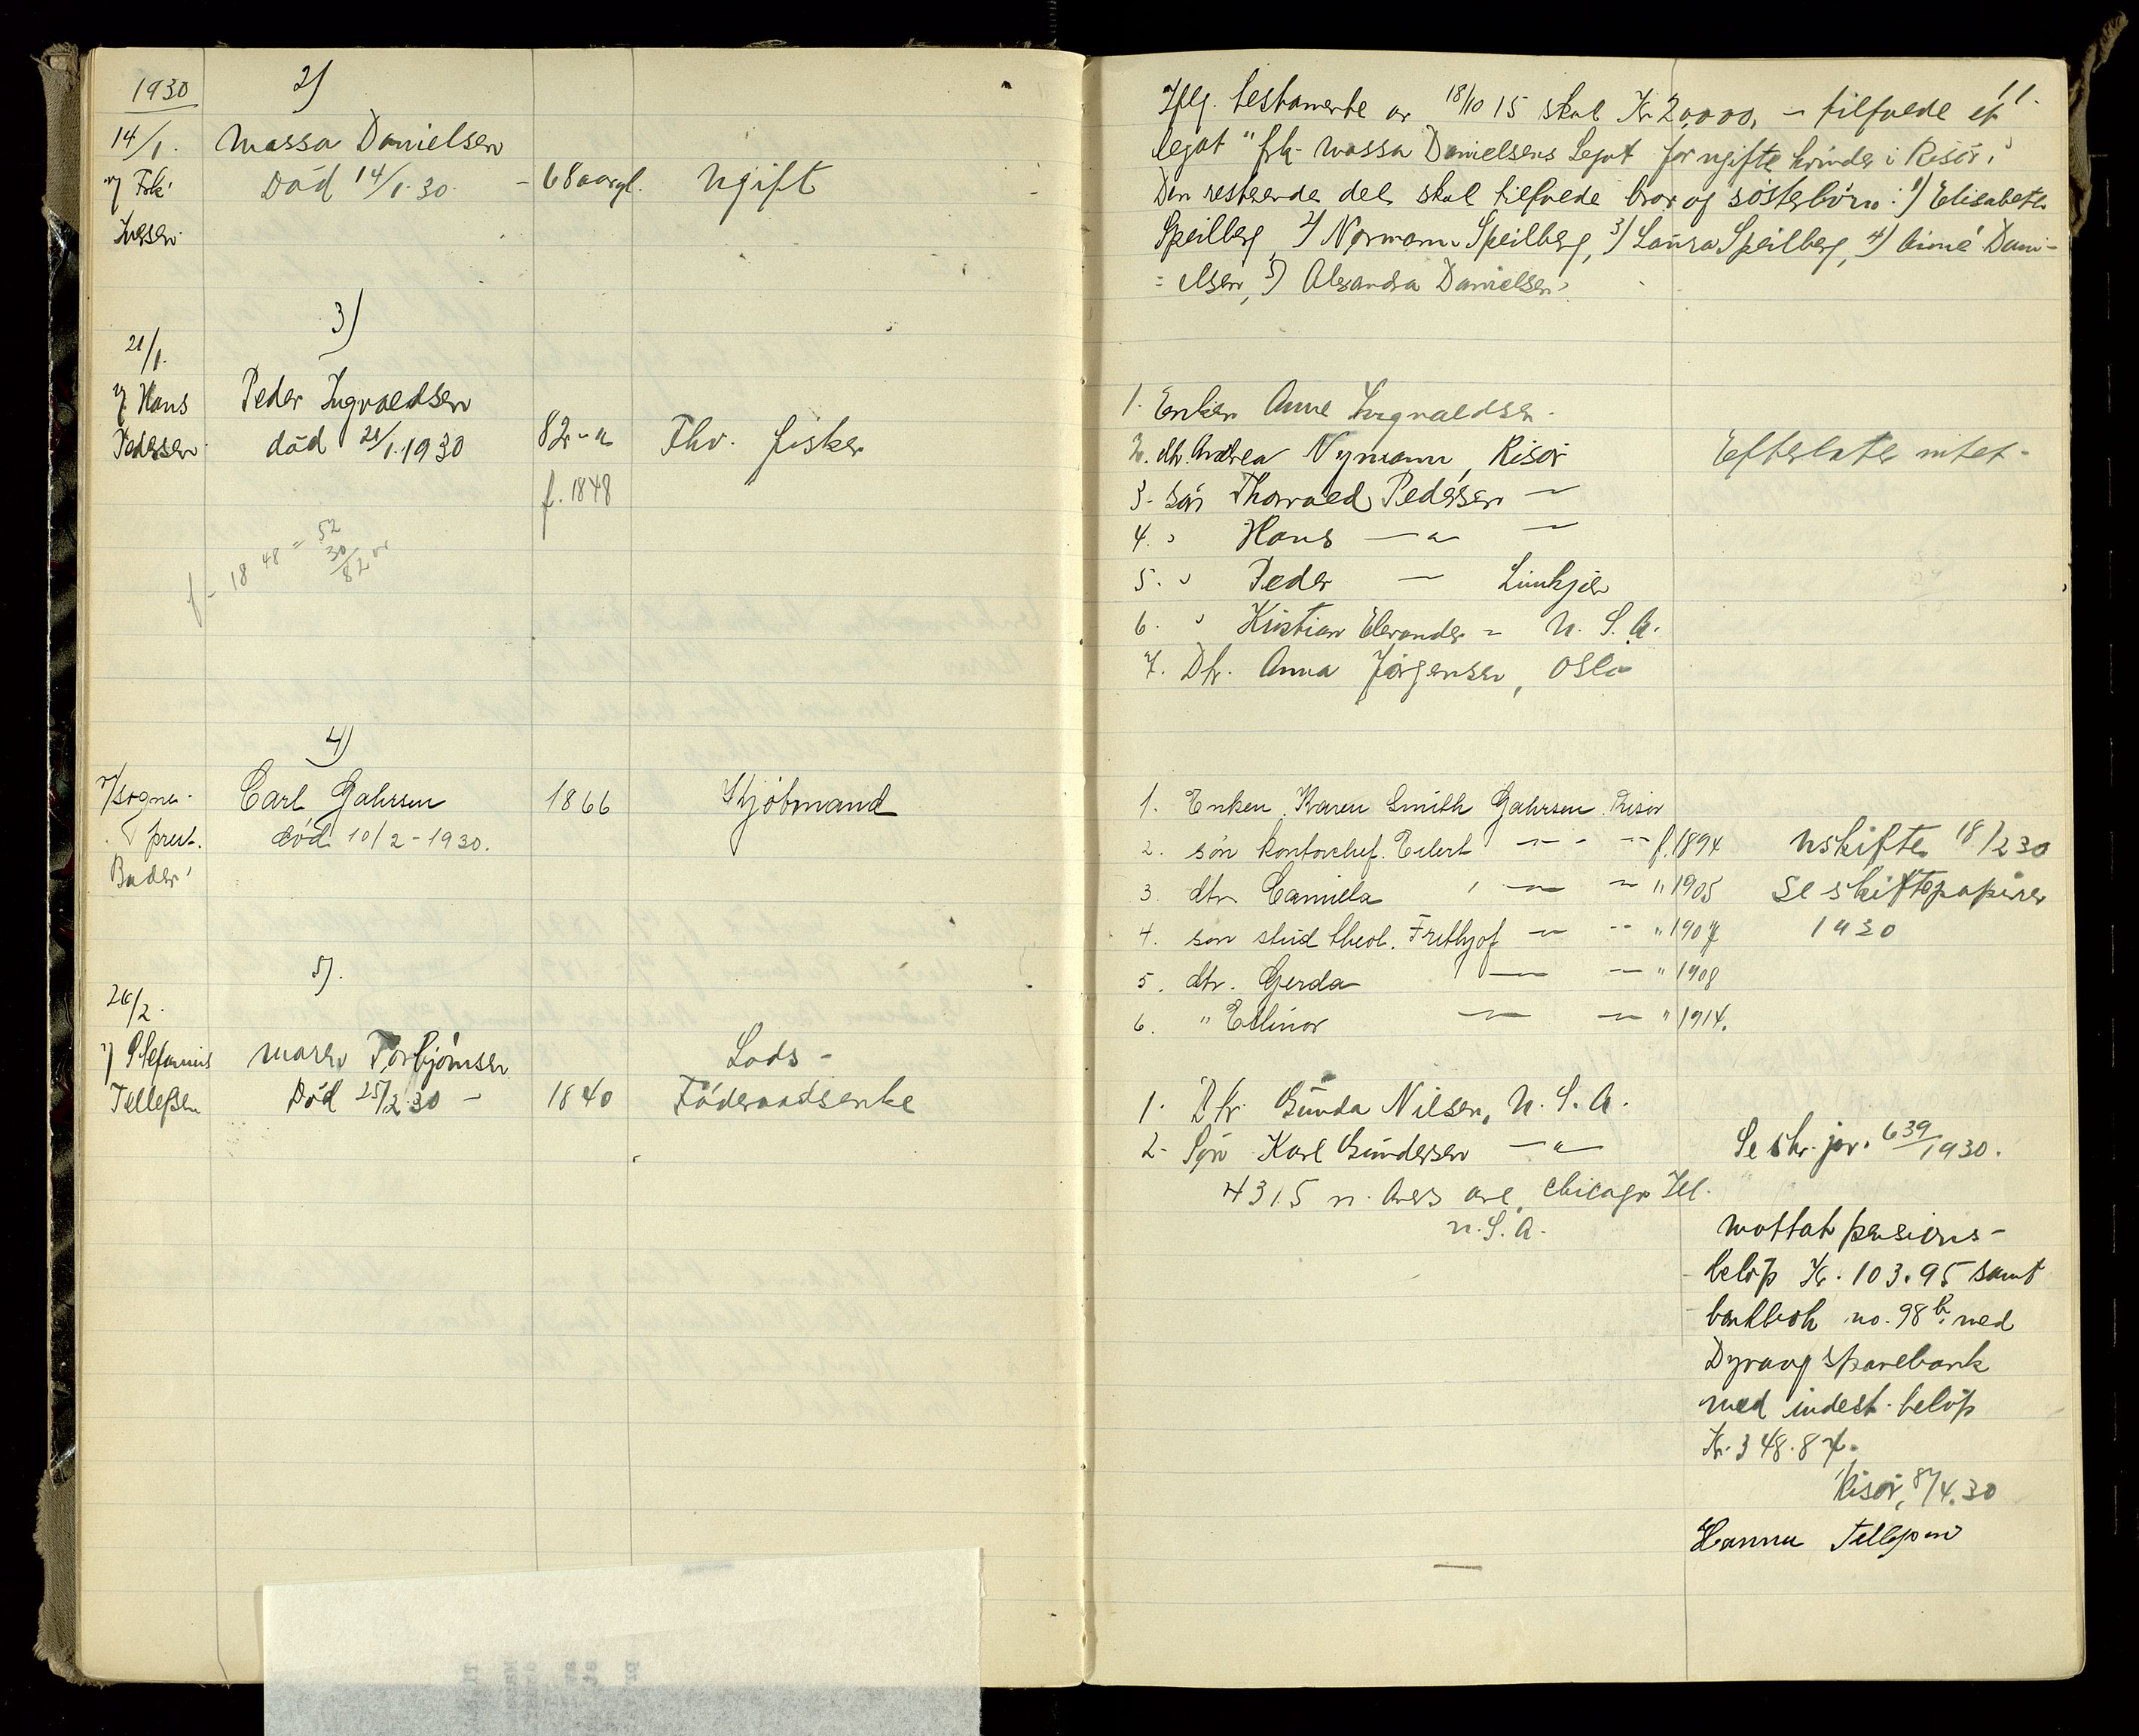 1930
2)
14/1.
Massa Danielsen
v/ Frk.
Død 14/1.30.
- 68 aar gl.
Ugift
Iversen
3)
21/1.
v/ Hans
Peder Ingvaldsen
Pedersen
død 21/1.1930
82
Fhv. fisker
f. 1848
f. 1848 = 52
30
82 år
4)
v/ sogne-
Carl Gahrsen
1866
Skjøtmand
prest.
død 10/2-1930.
Bader
5).
26/2.
v/ Stefanius
Maren Torbjørnsen
Lods-
Tellefsen
Død 25/2.30 -
1840
Føderaadsenke
11.
Iflg. testamente av 18/10 15 skal Kr 20,000,- tilfalde et
legat "frk. Massa Danielsens Legat for ugifte kvinder i Risør."
Den resterende del skal tilfalde bror og søsterbörn: 1) Elisabeth
Speilberg, 2) Normann Speilberg, 3) Laura Speilberg, 4) Aimé Dani-
= elsen, 5) Alexandra Danielsen.
1. Enken Anne Ingvaldsen.
2. dtr. Andrea Nymann, Risör
Efterlater intet -
3. Sön Thorvald Pedersen —
4. " Hans — " —
5. " Peder — Limkjer
6. " Kristian Elexander = U. S. A.
7. Dtr. Anna Jørgensen, Oslo
1. Enken Karen Smith Gahrsen Risør
2. søn kontorchef. Eilert — " — — f. 1894
Uskifte 18/2 30
3. dtr. Camilla " — — " 1905
Se skiftepapirer
4. søn stud. theol. Frithjof — — " 1907
1930
5. dtr. Gerda — — " 1908
6. " Ellinor — — " 1914.
1. Dtr. Gunda Nilsen, U. S. A.
2. Søn Karl Gundersen — " —
Se skr. jor. 639/1930.
4315 n. Avers ave, Chicago Ill.
U. S. A.
Mottat pensions-
beløp Kr. 103.95 samt
bankbok no. 98 b. med
Dyvaag Sparebank
med indest. beløp
Kr. 348.87.
Risør, 8/4.30
Hanna Tellefsen